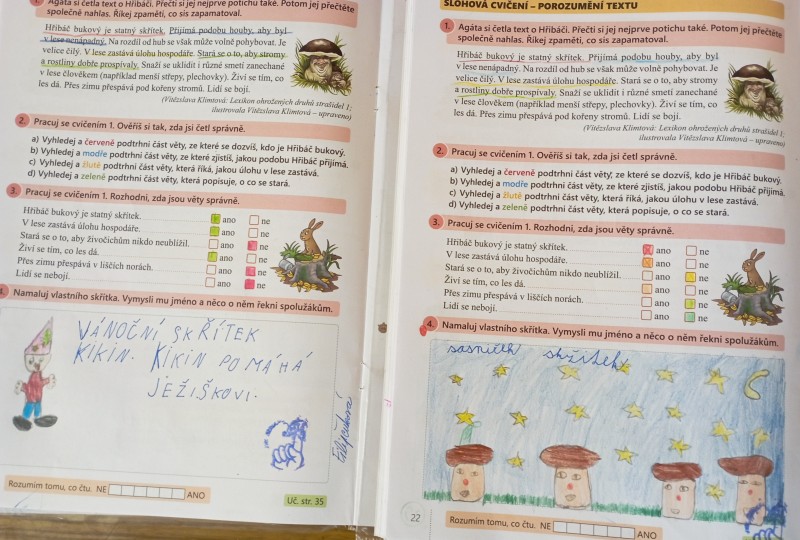 1. Agáta si četla text o Hřibáči. Přečti si jej nejprve potichu také. Potom jej přečtěte
společně nahlas. Říkej zpaměti, co sis zapamatoval.
Hřibáč bukový je statný skřítek. Přijímá podobu houby, aby byl
v lese nenápadný. Na rozdíl od hub se však může volně pohybovat. Je
velice čilý. V lese zastává úlohu hospodáře. Stará se o to, aby stromy
a rostliny dobře prospívaly. Snaží se uklidit i různé smetí zanechané
v lese člověkem (například menší střepy, plechovky). Živí se tím, co
les dá. Přes zimu přespává pod kořeny stromů. Lidí se bojí.
(Vítězslava Klimtová: Lexikon ohrožených druhů strašidel 1;
ilustrovala Vítězslava Klimtová – upraveno)
2. Pracuj se cvičením 1. Ověříš si tak, zda jsi četl správně.
a) Vyhledej a červeně podtrhni část věty, ze které se dozvíš, kdo je Hřibáč bukový.
b) Vyhledej a modře podtrhni část věty, ze které zjistíš, jakou podobu Hřibáč přijímá.
c) Vyhledej a žlutě podtrhni část věty, která říká, jakou úlohu v lese zastává.
d) Vyhledej a zeleně podtrhni část věty, která popisuje, o co se stará.
3. Pracuj se cvičením 1. Rozhodni, zda jsou věty správně.
Hřibáč bukový je statný skřítek. ano ne
V lese zastává úlohu hospodáře. ano ne
Stará se o to, aby živočichům nikdo neublížil. ano ne
Živí se tím, co les dá. ano ne
Přes zimu přespává v liščích norách. ano ne
Lidí se nebojí. ano ne
Namaluj vlastního skřítka. Vymysli mu jméno a něco o něm řekni spolužákům.
VÁNOČNÍ SKŘÍTEK
KIKIN. KIKIN POMÁHÁ
JEŽIŠKOVI.
Rozumím tomu, co čtu. NE ANO
Uč. str. 35
SLOHOVÁ CVIČENÍ – POROZUMĚNÍ TEXTU
1. Agáta si četla text o Hřibáči. Přečti si jej nejprve potichu také. Potom jej přečtěte
společně nahlas. Říkej zpaměti, co sis zapamatoval.
Hřibáč bukový je statný skřítek. Přijímá podobu houby, aby byl
v lese nenápadný. Na rozdíl od hub se však může volně pohybovat. Je
velice čilý. V lese zastává úlohu hospodáře. Stará se o to, aby stromy
a rostliny dobře prospívaly. Snaží se uklidit i různé smetí zanechané
v lese člověkem (například menší střepy, plechovky). Živí se tím, co
les dá. Přes zimu přespává pod kořeny stromů. Lidí se bojí.
(Vítězslava Klimtová: Lexikon ohrožených druhů strašidel 1;
ilustrovala Vítězslava Klimtová – upraveno)
2. Pracuj se cvičením 1. Ověříš si tak, zda jsi četl správně.
a) Vyhledej a červeně podtrhni část věty, ze které se dozvíš, kdo je Hřibáč bukový.
b) Vyhledej a modře podtrhni část věty, ze které zjistíš, jakou podobu Hřibáč přijímá.
c) Vyhledej a žlutě podtrhni část věty, která říká, jakou úlohu v lese zastává.
d) Vyhledej a zeleně podtrhni část věty, která popisuje, o co se stará.
3. Pracuj se cvičením 1. Rozhodni, zda jsou věty správně.
Hřibáč bukový je statný skřítek. ano ne
V lese zastává úlohu hospodáře. ano ne
Stará se o to, aby živočichům nikdo neublížil. ano ne
Živí se tím, co les dá. ano ne
Přes zimu přespává v liščích norách. ano ne
Lidí se nebojí. ano ne
4. Namaluj vlastního skřítka. Vymysli mu jméno a něco o něm řekni spolužákům.
22
Rozumím tomu, co čtu. NE ANO